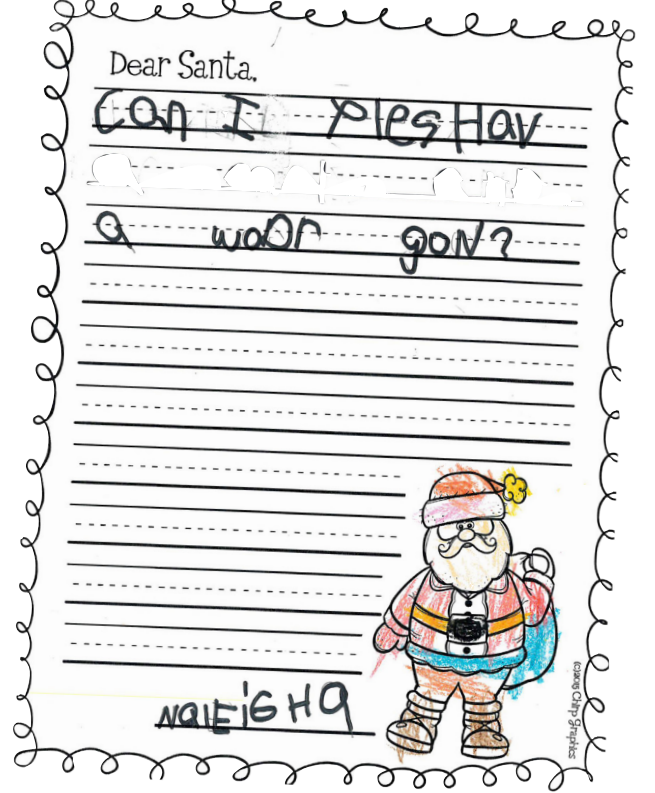 Dear Santa,
Can I Ples Hav
a waor goN?
NalEiGHa
(c)2015 Chirp Graphics